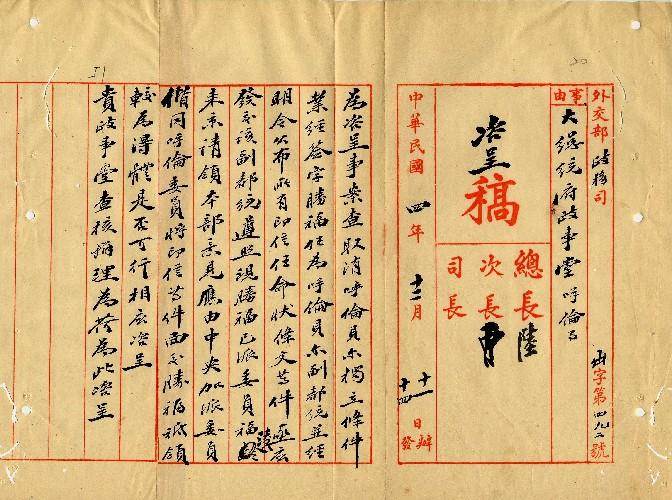 外交部 政務司 出字第四九二號
事由
大總統府政事堂 呼倫
咨呈
稿
總長 陸
次長 曹
司長
中華民國 四年 十二月 十一 十四 日辦發
為咨呈事案查取消呼倫貝尔獨立條件
業經簽字勝福任為呼倫貝尔副都統並經
明令公布所有印信任命狀條文等件亟应
發交該副都統遵照現勝福已派委員福
来京請領本部意見應由中央加派委員
偕同呼倫委員將印信等件面交勝福祗領
較為得體是否可行相应咨呈
貴政事堂查核辦理為荷為此咨呈
20